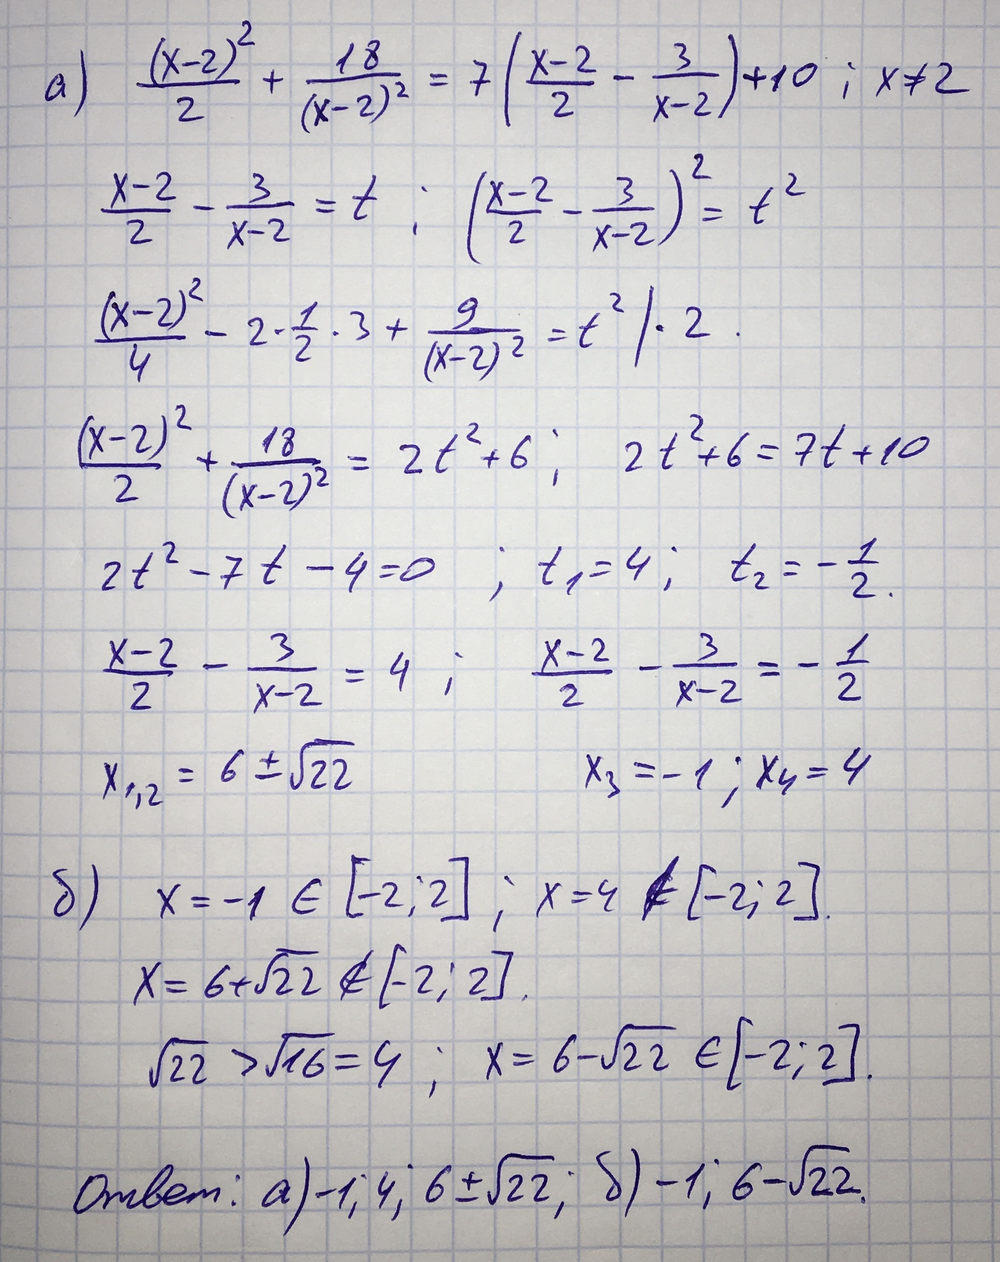 а) (x-2)²/2 + 18/(x-2)² = 7((x-2)/2 - 3/(x-2)) + 10 ; x≠2
(x-2)/2 - 3/(x-2) = t ; ((x-2)/2 - 3/(x-2))² = t²
(x-2)²/4 - 2·1/2·3 + 9/(x-2)² = t² |·2.
(x-2)²/2 + 18/(x-2)² = 2t²+6 ; 2t²+6 = 7t+10
2t² - 7t - 4 = 0 ; t₁ = 4 ; t₂ = -1/2.
(x-2)/2 - 3/(x-2) = 4 ; (x-2)/2 - 3/(x-2) = -1/2
x₁,₂ = 6 ± √22 x₃ = -1 ; x₄ = 4
б) x = -1 ∈ [-2; 2] ; x = 4 ∉ [-2; 2].
x = 6+√22 ∉ [-2; 2].
√22 > √16 = 4 ; x = 6-√22 ∈ [-2; 2].
Ответ: а) -1; 4; 6 ± √22; б) -1; 6-√22.